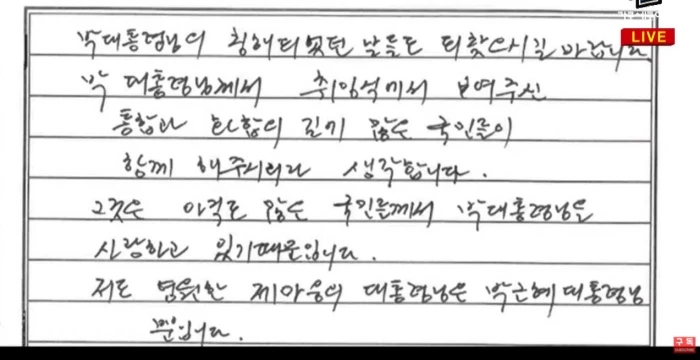 LIVE
박대통령님의 침해되었던 날들도 되찾으시길 바랍니다.
박 대통령님께서 취임식에서 보여주신
통합과 화합의 길에 많은 국민들이
함께 해주시리라 생각합니다.
그것은 아직도 많은 국민들께서 박대통령님을
사랑하고 있기때문입니다.
저도 영원한 제마음의 대통령님은 박근혜대통령님
뿐입니다.
구독